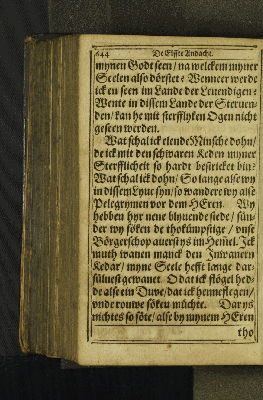 644 De Elffte Andacht.
mynen Godt seen / na welckem myner
Seelen also dörstet? Wenneer werde
ick en seen im Lande der Leuendigen?
Wente in dissem Lande der Steruen-
den / kan he mit sterfflyken Ogen nicht
geseen werden.
Wat schal ick elende Minsche dohn /
de ick mit den schwaren Keden myner
Sterfflicheit so hardt bestricket bin?
Wat schal ick dohn? So lange alse wy
in dissem Lyue syn / so wandere wy alse
Pelegrymen vor dem HEren. Wy
hebben hyr nene blyuende stede / sün-
der wy söken de thokümpstige / vnse
Börgerschop auerst ys im Hemel. Ick
muth wanen manck den Inwanern
Kedar / myne Seele hefft lange dar-
süluest gewanet. O dat ick flögel hed-
de alse ein Duue / dat ick henneflegen /
vnde rouwe söken müchte. Dar ys
nichtes so söte / alse by mynem HEren
tho